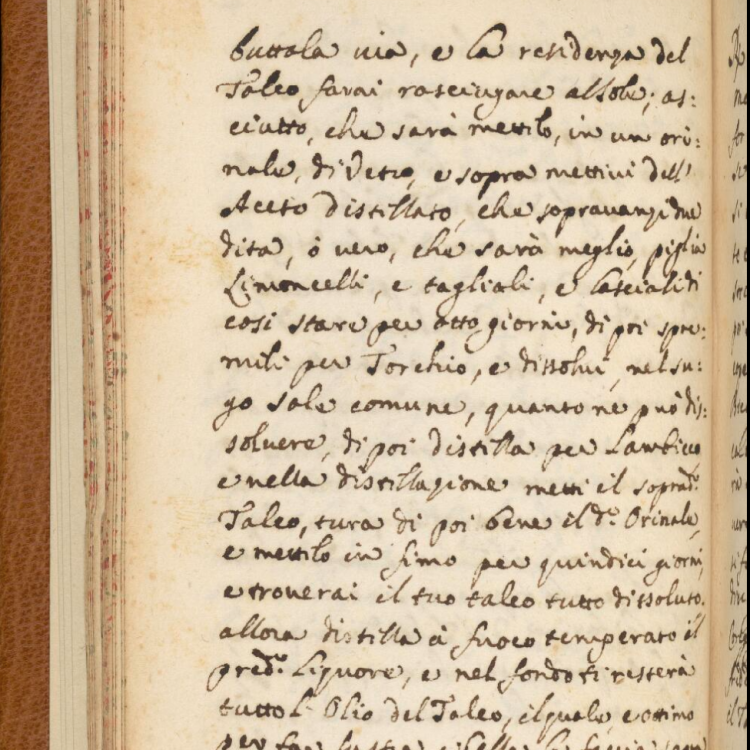 buttala via, e la residenza del
Talco farai rasciugare al Sole; as:
ciutto, che sarà mettilo, in un ori:
nale, di Vetro, e sopra mettivi dell'
Aceto distillato, che sopravanzi due
dita, ó vero, che sarà meglio, piglia
Limoncelli, e tagliali, e lasciali di
cosi stare per otto giorni, di poi spre:
mili per Torchio, e dissolvi, nel su:
go sale comune, quanto ne può dis:
solvere, di poi distilla per Lambicco
e nella distillazione metti il soprad.º
Talco, tura di poi bene il d.º Orinale,
e mettilo in fimo per quindici giorni,
e troverai il tuo talco tutto dissoluto.
allora distilla á fuoco temperato il
pred.º Liquore, e nel fondo ti resterà
tutto l'Olio del Talco, il quale, e ottimo
per far lustra, e bella la faccia